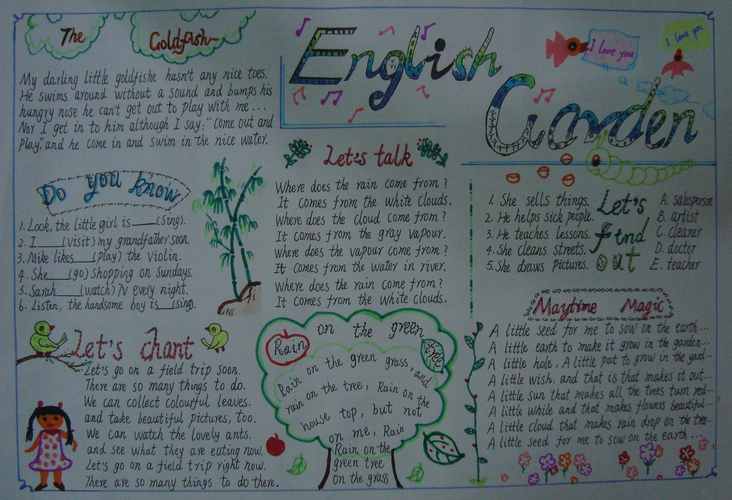 The Goldfish
My darling little goldfishe hasn't any nice toes.
He swims around without a sound and bumps his
hungry nose he can't get out to play with me...
Nor I get in to him although I say: "Come out and
Play" and he come in and swim in the nice water.
English
Garden
I love you
I love you
Do you know
1. Look, the little girl is____(sing).
2. I____(visit) my grandfather soon.
3. Mike likes____(play) the violin.
4. She____(go) shopping on Sundays.
5. Sarah____(watch) TV every night.
6. Listen, the handsome boy is__(sing).
Let's talk
Where does the rain come from?
It comes from the white clouds.
Where does the cloud come from?
It comes from the gray vapour.
Where does the vapour come from?
It comes from the water in river.
Where does the rain come from?
It comes from the white clouds.
Let's
find
out
1. She sells things.
2. He helps sick people.
3. He teaches lessons.
4. She cleans streets.
5. She draws pictures.
A. salesperson
B. artist
C. Cleaner
D. doctor
E. teacher
Let's chant
Let's go on a field trip soon.
There are so many things to do.
We can collect colourful leaves.
and take beautiful pictures, too.
We can watch the lovely ants.
and see what they are eating now.
Let's go on a field trip right now.
There are so many things to do there.
Rain on the green tree
Rain on the green grass, and
rain on the tree, Rain on the
house top, but not
on me, Rain
Rain on the
green tree
on the grass
Maytime Magic
A little seed for me to sow in the earth...
A little earth to make it grow in the garden...
A little hole, A little pat to grow in the yard...
A little wish, and that is that makes it out...
A little sun that makes all the trees turn red...
A little while and that makes flowers beautiful...
A little cloud that makes rain drop on the tree...
A little seed for me to sow on the earth...